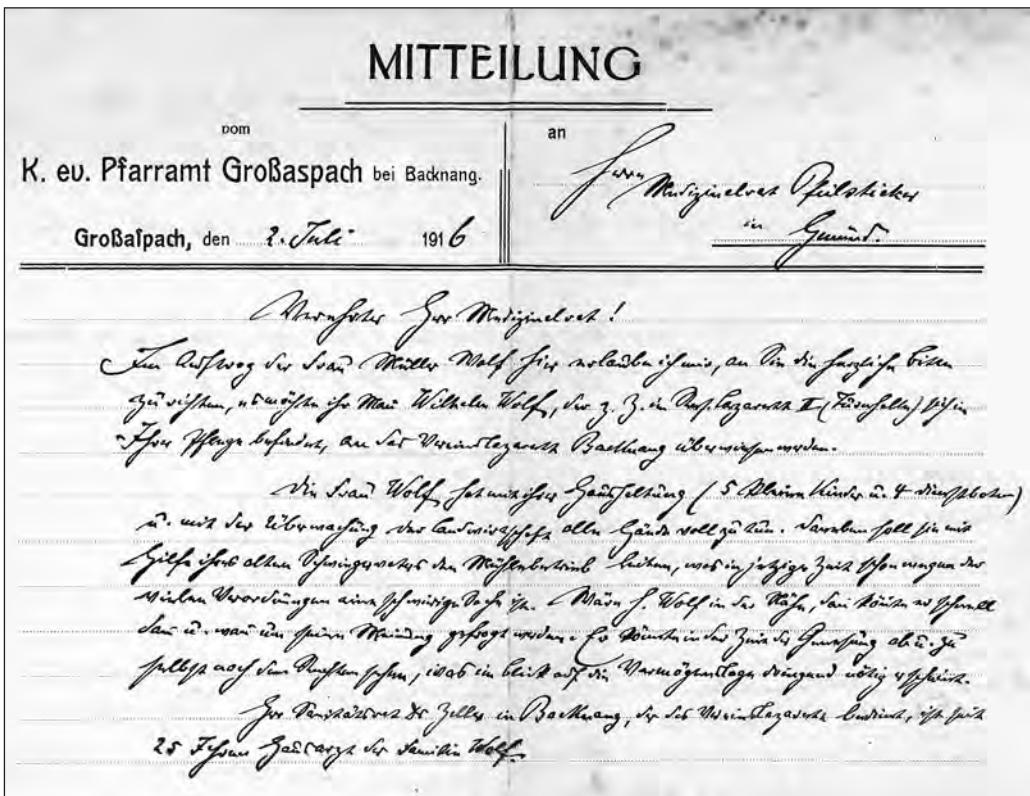 MITTEILUNG
vom
K. ev. Pfarramt Großaspach bei Backnang.
Großaſpach, den 2. Juli 1916
an
Herrn
Medizinalrat Pfeilsticker
in Gmünd.
Verehrter Herr Medizinalrat!
Im Auftrag der Frau Müller Wolf hier erlaube ich mir, an Sie die herzliche Bitte
zu richten, es möchte ihr Mann Wilhelm Wolf, der z. Z. im Res. Lazarett II (Turnhalle) sich in
Ihrer Pflege befindet, an das Vereinslazarett Backnang überwiesen werden.
Die Frau Wolf hat mit ihrer Haushaltung (5 kleine Kinder u. 4 Dienstboten)
u. mit der Überwachung der Landwirtschaft alle Hände voll zu tun. Daneben soll sie mit
Hilfe ihres alten Schwiegervaters den Mühlebetrieb leiten, was in jetziger Zeit schon wegen der
vielen Verordnungen eine schwierige Sache ist. Wäre H. Wolf in der Nähe, dann könnte er schnell
dann u. wann um seine Meinung gefragt werden. Er könnte in der Zeit der Genesung ab u. zu
selbst nach dem Rechten sehen, was im Blick auf die Vermögenslage dringend nötig erscheint.
Herr Sanitätsrat Dr Zeller in Backnang, der das Vereinslazarett bedient, ist seit
25 Jahren Hausarzt der Familie Wolf.